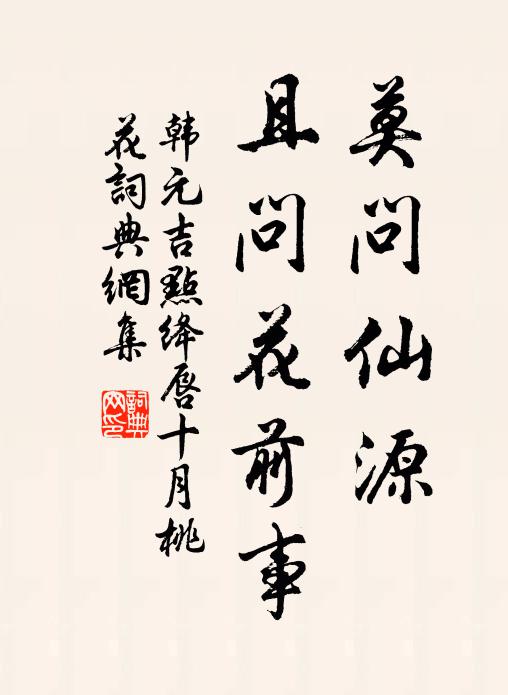 莫问仙源
且问花前事
韩元吉點绛唇十月桃
花詞典網集
詞典
网印